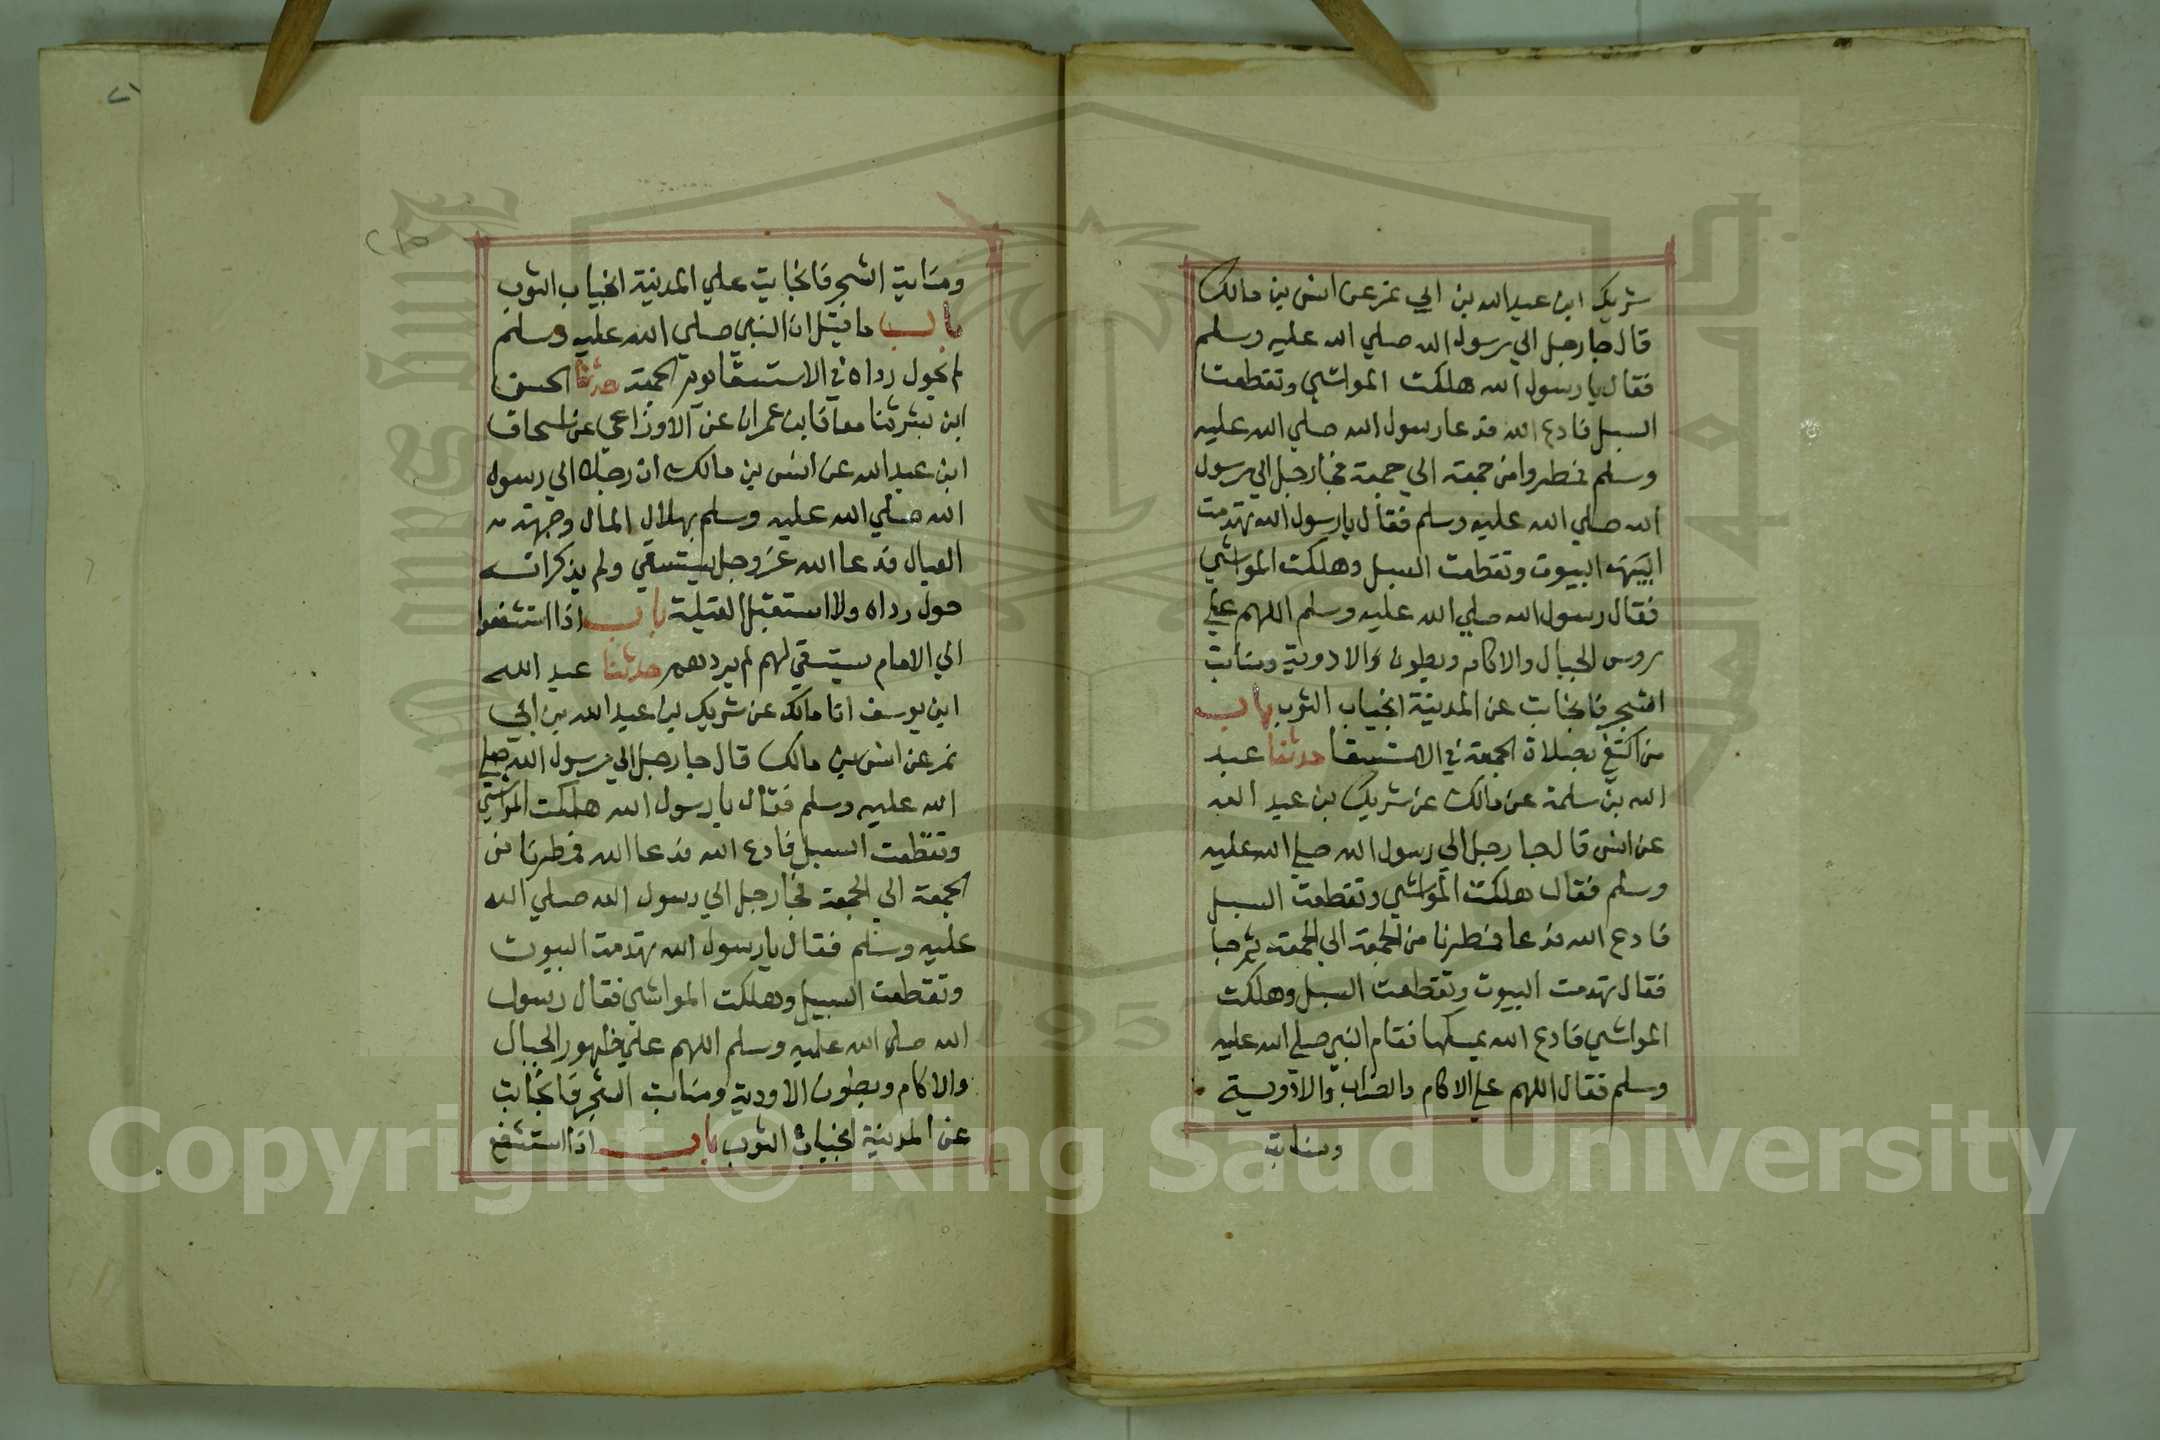 شريك ابن عبد الله بن ابي نمر عن انس بن مالك
قال جا رجل الي رسول الله صلي الله عليه وسلم
فقال يا رسول الله هلكت المواشي وتقطعت
السبل فادع الله فدعا رسول الله صلي الله عليه
وسلم فمطروا من جمعة الي جمعة فجا رجل الي رسول
الله صلي الله عليه وسلم فقال يا رسول الله تهدمت
البيوت وتقطعت السبل وهلكت المواشي
فقال رسول الله صلي الله عليه وسلم اللهم علي
روس الجبال والاكام وبطون والادوية ومنابت
الشجر فانجابت عن المدينة انجياب الثوب باب
من اكتفي بصلاة الجمعة في الاستسقا حدثنا عبد
الله بن سلمة عن مالك عن شريك بن عبد الله
عن انس قال جا رجل الي رسول الله صلي الله عليه
وسلم فقال هلكت المواشي وتقطعت السبل
فادع الله فدعا فمطرنا من الجمعة الي الجمعة ثم جا
فقال تهدمت البيوت وتقطعت السبل وهلكت
المواشي فادع الله يمسكها فقام النبي صلي الله عليه
وسلم فقال اللهم علي الاكام والضراب والادوية
ومنابت
٢١
٢١٥
ومنابة الشجر فانجابت علي المدينة انجياب الثوب
باب ما قيل ان النبي صلي الله عليه وسلم
لم يحول رداه في الاستسقا يوم الجمعة حدثنا الحسن
ابن بشر ثنا معافا بن عمران عن الاوزاعي عن اسحاق
ابن عبد الله عن انس بن مالك ان رجلا الي رسول
الله صلي الله عليه وسلم بهلال المال وجهد
العيال فدعا الله عز وجل يستسقي ولم يذكر انه
حول رداه ولا استقبل القبلة باب اذا استشفعوا
الي الامام يستسقي لهم لم يردهم حدثنا عبد الله
ابن يوسف انا مالك عن شريك بن عبد الله بن ابي
نمر عن انس بن مالك قال جا رجل الي رسول الله صلي
الله عليه وسلم فقال يا رسول الله هلكت المواشي
وتقطعت السبل فادع الله فدعا الله فمطرنا من
الجمعة الي الجمعة فجا رجل الي رسول الله صلي الله
عليه وسلم فقال يا رسول الله تهدمت البيوت
وتقطعت السبيل وهلكت المواشي فقال رسول
الله صلي الله عليه وسلم اللهم علي ظهور الجبال
والاكام وبطون الاودية ومنابت الشجر فانجابت
عن المدينة انجياب الثوب باب اذا استشفع
King Saud University
1957
Copyright © King Saud University